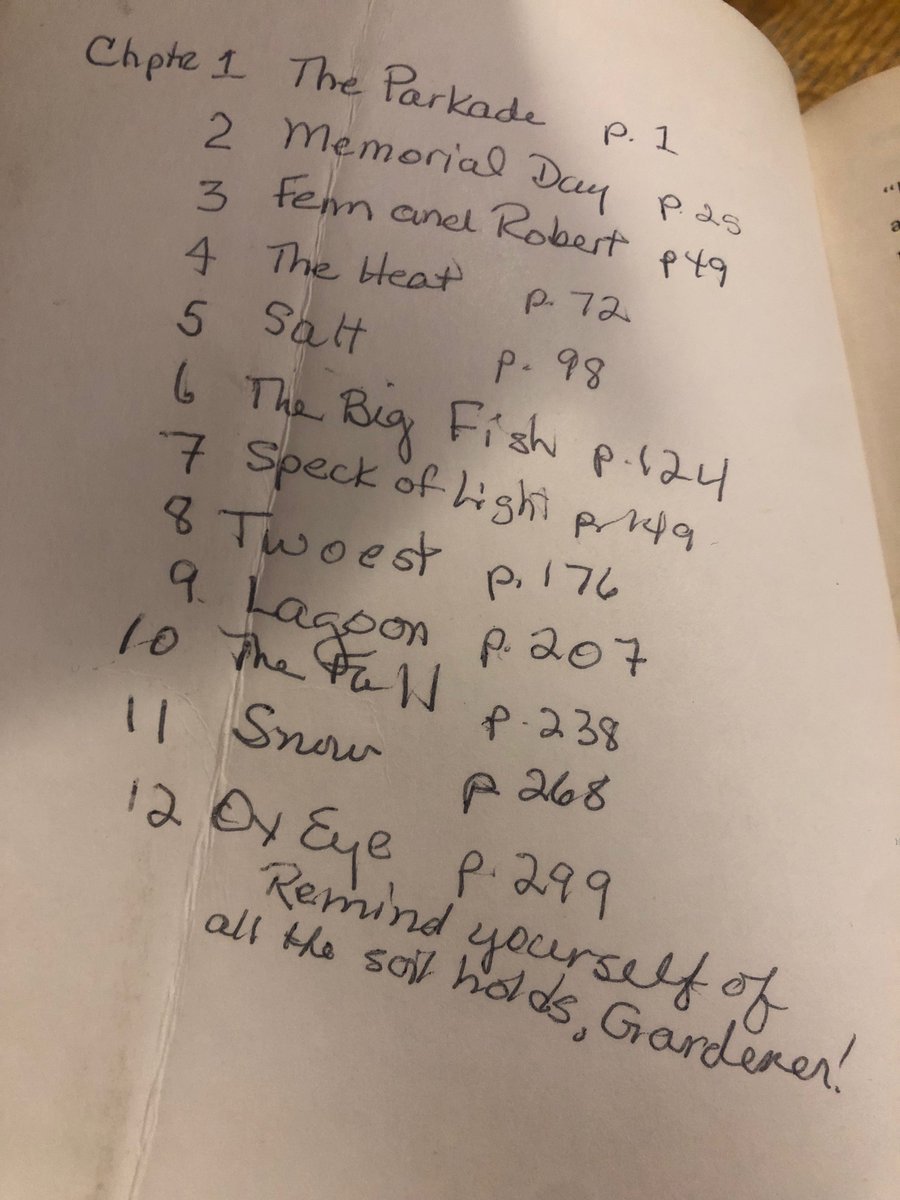 Chpte 1 The Parkade p. 1
2 Memorial Day p. 25
3 Fenn and Robert p 49
4 The Heat p. 72
5 Salt p. 98
6 The Big Fish p. 124
7 Speck of Light p. 149
8 Twoest p. 176
9. Lagoon p. 207
10 The Fall p. 238
11 Snow p 268
12 Ox Eye p. 299
Remind yourself of
all the soil holds, Gardener!